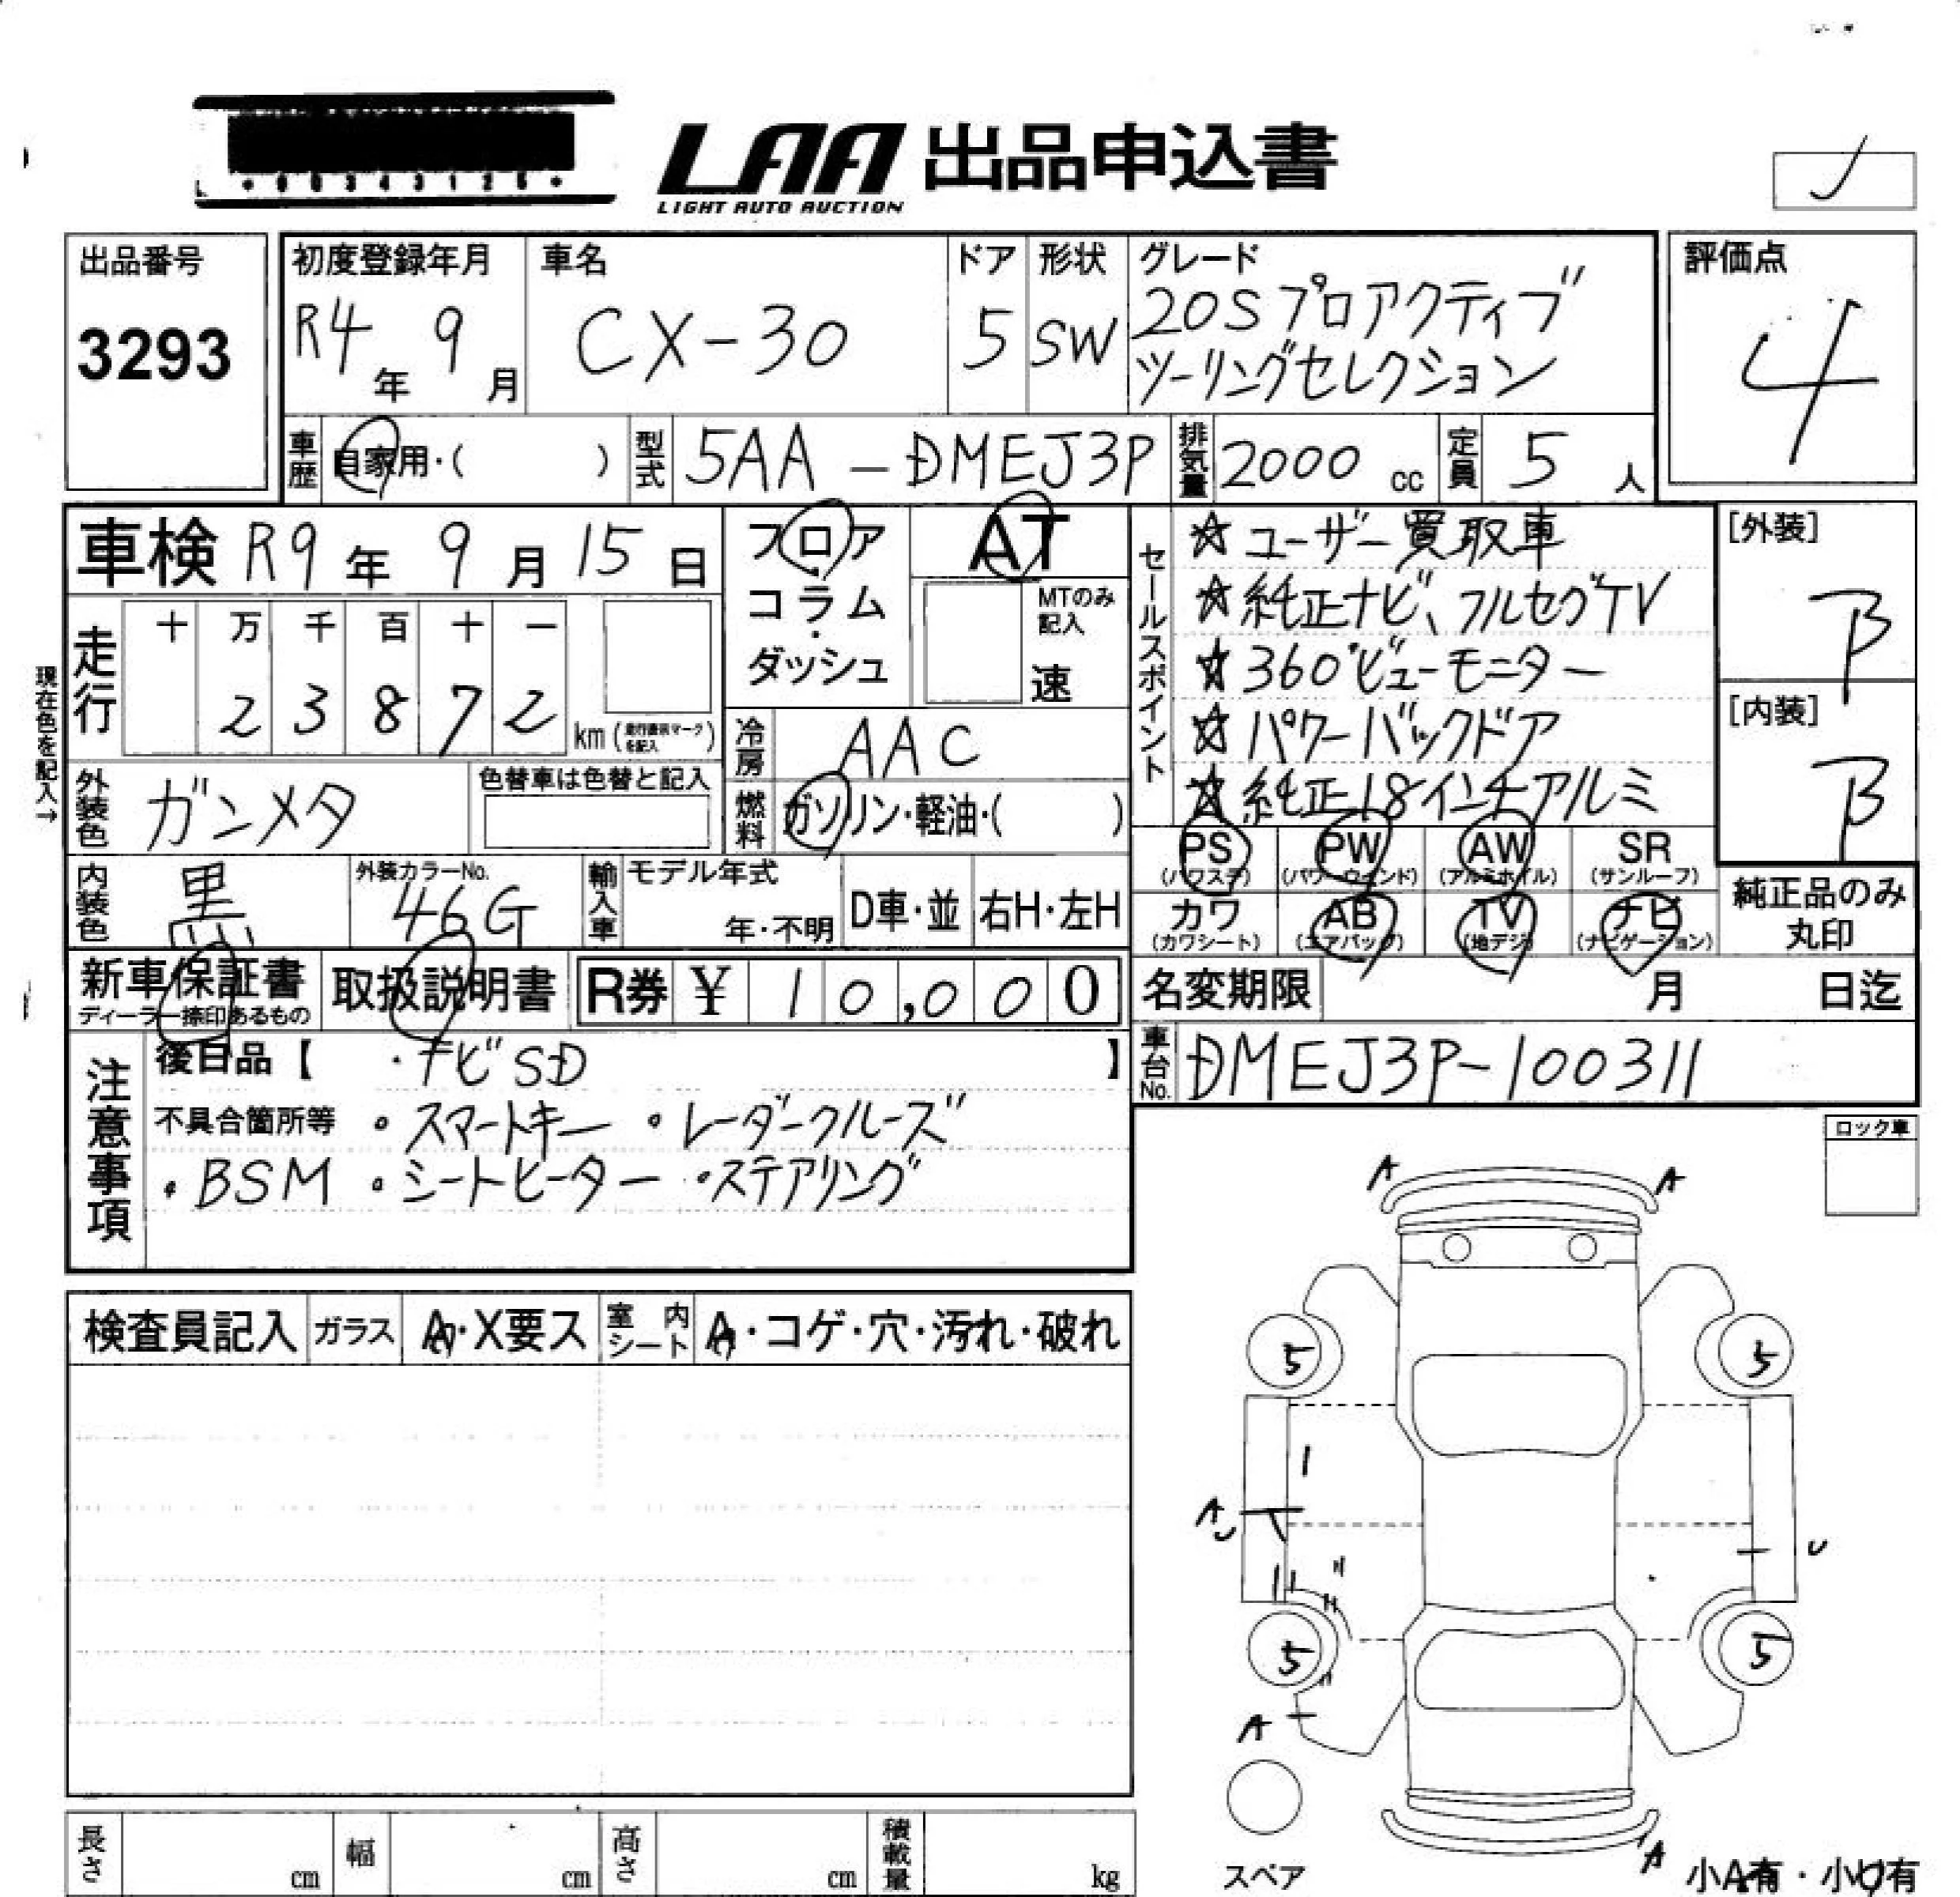 LAA 出品申込書
LIGHT AUTO AUCTION
出品番号
3293
初度登録年月
R4年 9月
車名
CX-30
ドア
5
形状
SW
グレード
20Sプロアクティブ
ツーリングセレクション
評価点
4
車歴 自家用・( )
型式 5AA-DMEJ3P
排気量 2000 cc
定員 5 人
車検 R9年 9月 15日
フロア
・
コラム
・
ダッシュ
AT
MTのみ
記入
速
セールスポイント
☆ユーザー買取車
☆純正ナビ、フルセグTV
☆360°ビューモニター
☆パワーバックドア
☆純正18インチアルミ
[外装]
B
[内装]
B
現在色を記入→
走行
十 万 千 百 十 一
2 3 8 7 2
km
冷房 AAC
燃料 ガソリン・軽油・( )
外装色 ガンメタ
色替車は色替と記入
内装色 黒
外装カラーNo.
46G
輸入車
モデル年式
年・不明
D車・並
右H・左H
PS
(パワステ)
PW
(パワーウインド)
AW
(アルミホイル)
SR
(サンルーフ)
カワ
(カワシート)
AB
(エアバッグ)
TV
(地デジ)
ナビ
(ナビゲーション)
純正品のみ
丸印
新車保証書
ディーラー捺印あるもの
取扱説明書
R券 ¥ 10,000
名変期限 月 日迄
車台No. DMEJ3P-100311
注意事項
後日品【 ・ナビSD 】
不具合箇所等 ・スマートキー ・レーダークルーズ
・BSM ・シートヒーター ・ステアリング
ロック車
検査員記入
ガラス
A・X要ス
室内シート
A・コゲ・穴・汚れ・破れ
A A
5 5
A
U U
5 5
A
スペア
A
小A有・小U有
長さ cm
幅 cm
高さ cm
積載量 kg